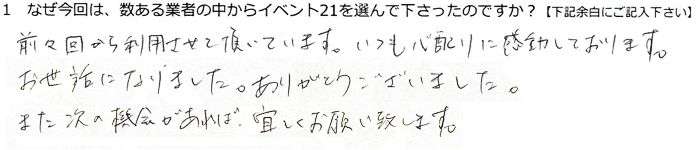 1 なぜ今回は、数ある業者の中からイベント21を選んで下さったのですか？【下記余白にご記入下さい】
前々回から利用させて頂いています。いつも心配りに感動しております。
お世話になりました。ありがとうございました。
また次の機会があれば、宜しくお願い致します。